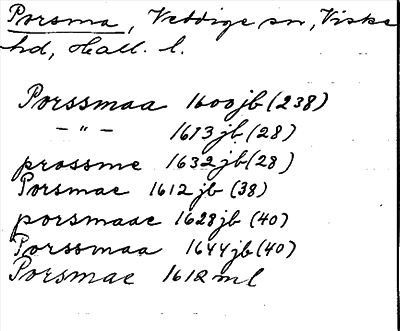 Porsma, Veddige sn, Viske
hd, Hall. l.
Porssmaa 1600jb (238)
— " — 1613jb (28)
prossme 1632jb (28)
Porsmae 1612jb (38)
porsmaae 1628jb (40)
Porssmaa 1644jb (40)
Porsmae 1612ml